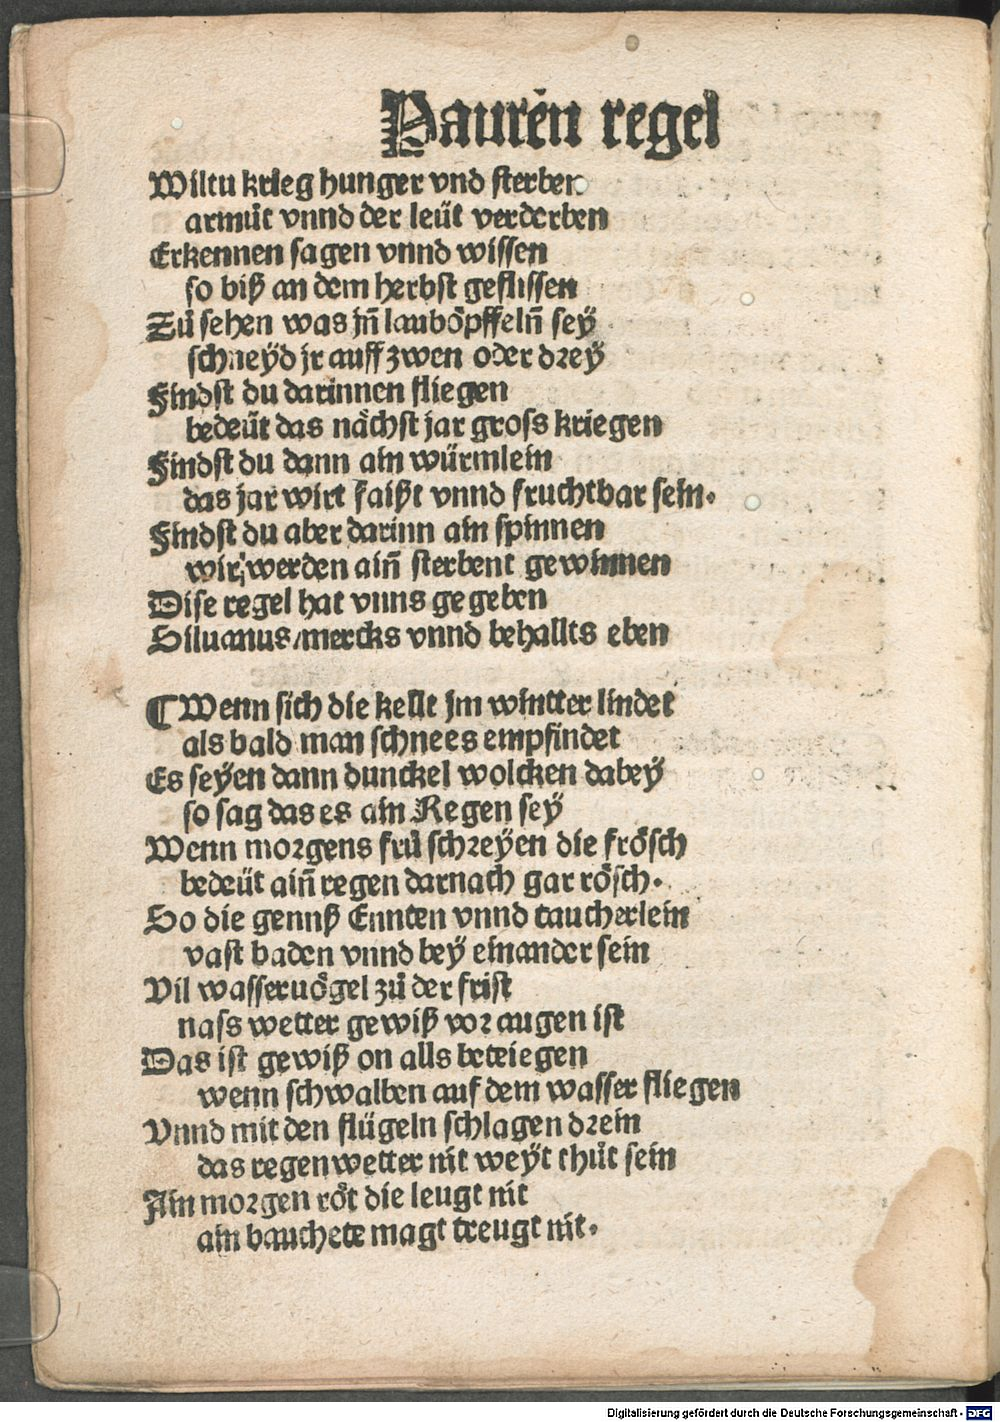 Pauren regel
Wiltu krieg hunger vnd sterben
armůt vnnd der leüt verderben
Erkennen sagen vnnd wissen
so biß an dem herbst geflissen
Zů sehen was jñ lauböpffelñ sey
schneyd jr auff zwen oder drey
Findst du darinnen fliegen
bedeüt das nächst jar gross kriegen
Findst du dann ain würmlein
das jar wirt faißt vnnd fruchtbar sein.
Findst du aber darinn ain spinnen
wir werden aiñ sterbent gewinnen
Dise regel hat vnns gegeben
Siluanus/mercks vnnd behallts eben
¶ Wenn sich die kellt jm wintter lindet
als bald man schnees empfindet
Es seyen dann dunckel wolcken dabey
so sag das es ain Regen sey
Wenn morgens frů schreyen die frösch
bedeüt aiñ regen darnach gar rösch.
So die gennß Ennten vnnd taucherlein
vast baden vnnd bey einander sein
Vil wasseruögel zů der frist
nass wetter gewiß vor augen ist
Das ist gewiß on alls betriegen
wenn schwalben auf dem wasser fliegen
Vnnd mit den flügeln schlagen drein
das regenwetter nit weyt thůt sein
Ain morgen röt die leugt nit
ain bauchete magt treugt nit.
Digitalisierung gefördert durch die Deutsche Forschungsgemeinschaft - DFG